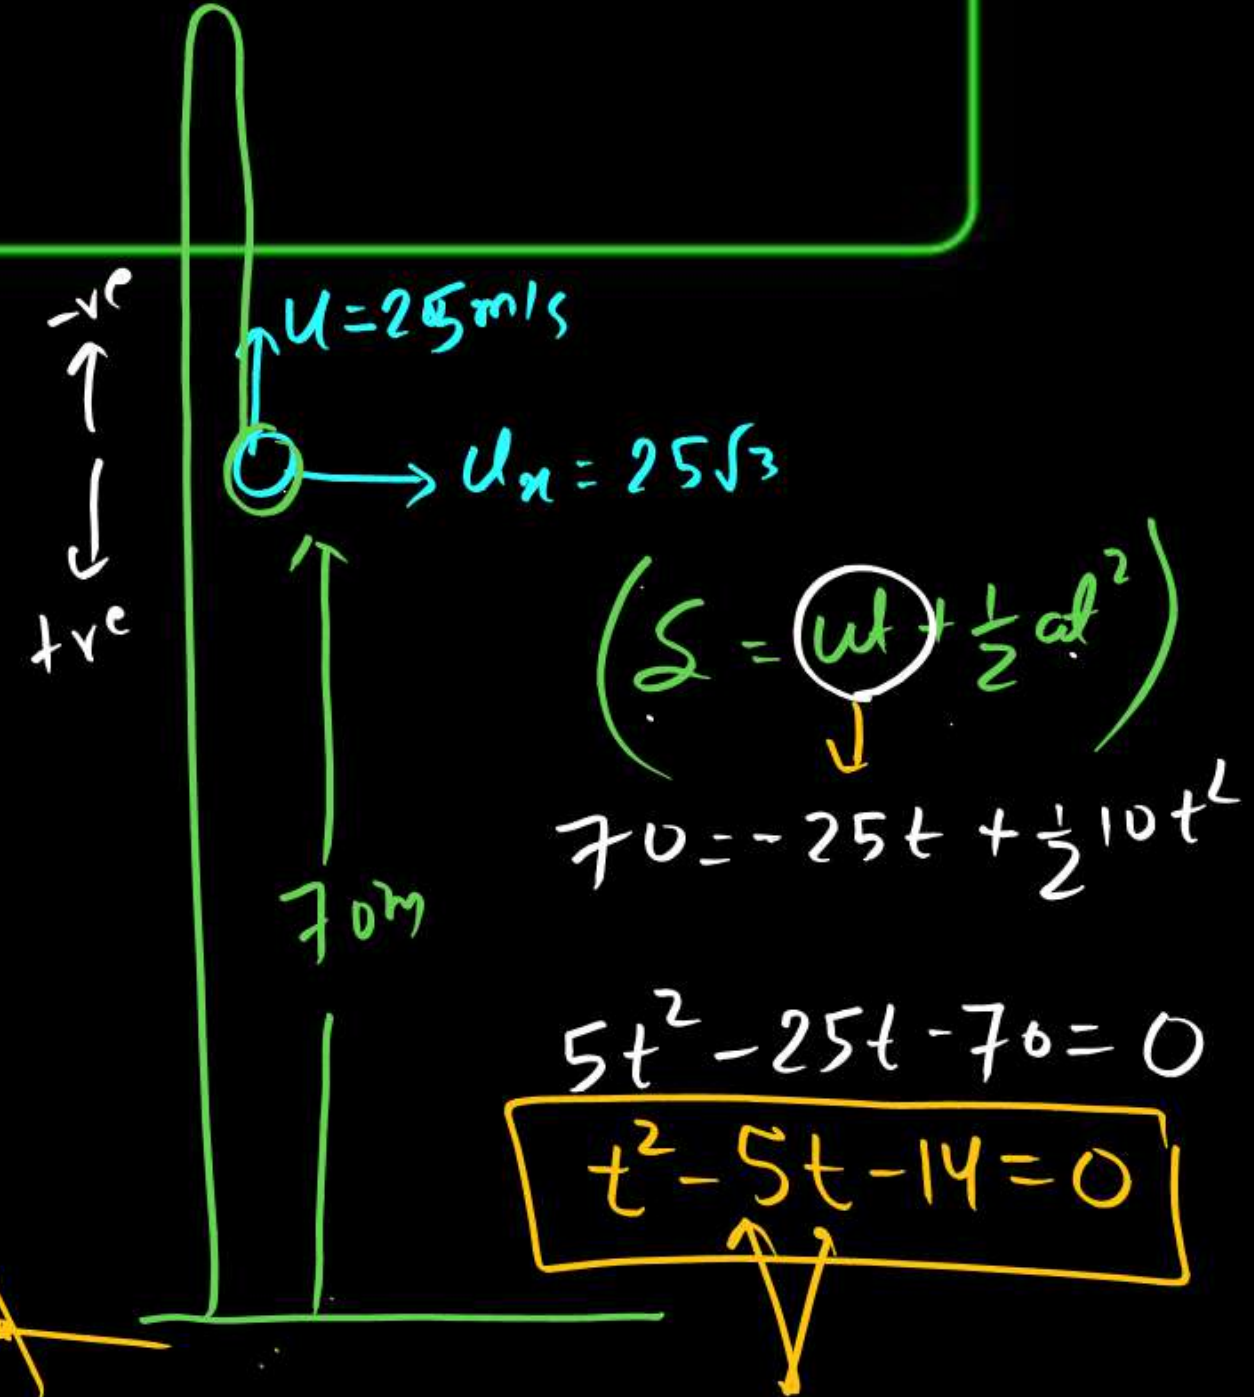 -ve
U = 25 m/s
Ux = 25√3
+ve
(S = ut + 1/2 at²)
70 = - 25t + 1/2 10t²
70m
5t² - 25t - 70 = 0
t² - 5t - 14 = 0